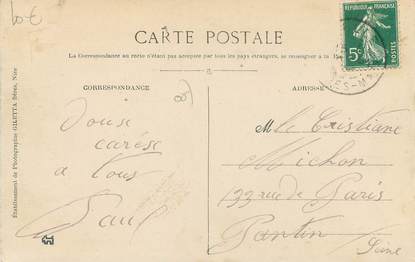 10€
CARTE POSTALE
La Correspondance au recto n'étant pas acceptée par tous les pays étrangers, se renseigner à la
REPUBLIQUE FRANÇAISE
5c
POSTES
CORRESPONDANCE
ADRESSE
Etablissement de Photographie GILETTA frères, Nice
Douse
carèse
a tous
Paul
Mlle Cristiane
Michon
133 rue de Paris
Pantin
Seine